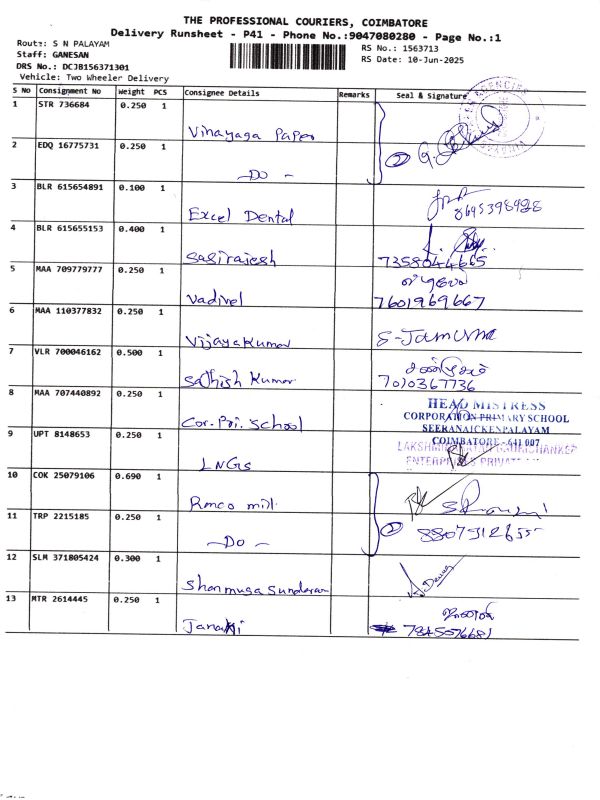 THE PROFESSIONAL COURIERS, COIMBATORE
Delivery Runsheet - P41 - Phone No.:9047080280 - Page No.:1
Route: S N PALAYAM
RS No.: 1563713
Staff: GANESAN
RS Date: 10-Jun-2025
DRS No.: DCJB156371301
Vehicle: Two Wheeler Delivery
S No Consignment No Weight PCS Consignee Details Remarks Seal & Signature
1 STR 736684 0.250 1
Vinayaga Paper
2 EDQ 16775731 0.250 1
-DO-
3 BLR 615654891 0.100 1
Excel Dental 8695398928
4 BLR 615655153 0.400 1
Sasirajesh 7358044665
5 MAA 709779777 0.250 1
Vadivel 7601969667
6 MAA 110377832 0.250 1
Vijayakumar S-Jamuna
7 VLR 700046162 0.500 1
Sathish Kumar 7010367736
8 MAA 707440892 0.250 1
Cor. Pri. School
HEAD MISTRESS
CORPORATION PRIMARY SCHOOL
SEERANAICKENPALAYAM
COIMBATORE - 641 007
9 UPT 8148653 0.250 1
LNGS
ENTERPRISES PRIVATE
10 COK 25079106 0.690 1
Rmco mill
11 TRP 2215185 0.250 1
-DO- 2
12 SLM 371805424 0.300 1
Shanmuga Sundaran
13 MTR 2614445 0.250 1
Janaki 7845076681